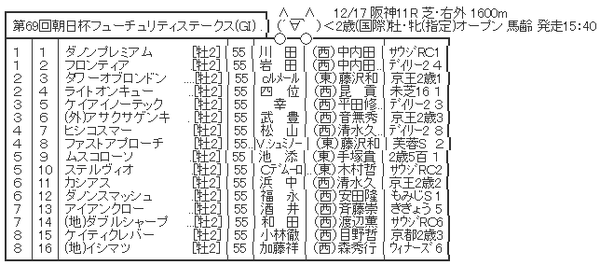 第69回朝日杯フューチュリティステークス(GI) . (´∀`) <2歳(国際)牡・牝(指定)オープン 馬齢 発走15:40
12/17 阪神11R 芝・右外 1600m
1 1 ダノンプレミアム [牡2] 55 川 田 (西)中内田 サウジRC1
1 2 フロンティア [牡2] 55 岩 田 (西)中内田‥ デイリー2 4
2 3 タワーオブロンドン ‥[牡2] 55 cルメール (東)藤沢和 京王2歳1
2 4 ライトオンキュー ‥[牡2] 55 四 位 (西)昆 貢 未芝16 1
3 5 ケイアイノーテック ‥[牡2] 55 幸 (西)平田修‥ デイリー2 3
3 6 (外)アサクサゲンキ ‥[牡2] 55 武 豊 (西)音無秀 京王2歳3
4 7 ヒシコスマー [牡2] 55 松 山 (西)清水久‥ デイリー2 8
4 8 ファストアプローチ ‥[牡2] 55 V.シュミノー (東)藤沢和 芙蓉S 2
5 9 ムスコローソ [牡2] 55 池 添 (東)手塚貴 2歳5百1
5 10 ステルヴィオ [牡2] 55 Cデムーロ (東)木村哲 サウジRC2
6 11 カシアス [牡2] 55 浜 中 (西)清水久 京王2歳2
6 12 ダノンスマッシュ [牡2] 55 福 永 (西)安田隆 もみじS1
7 13 アイアンクロー [牡2] 55 酒 井 (西)斉藤崇 ききょう5
7 14 (地)ダブルシャープ [牡2] 55 和 田 (西)渡辺薫 サウジRC6
8 15 ケイティクレバー [牡2] 55 小林徹 (西)目野哲 京都2歳3
8 16 (地)イシマツ [牡2] 55 加藤祥 (西)森秀行 ウィナーズ6